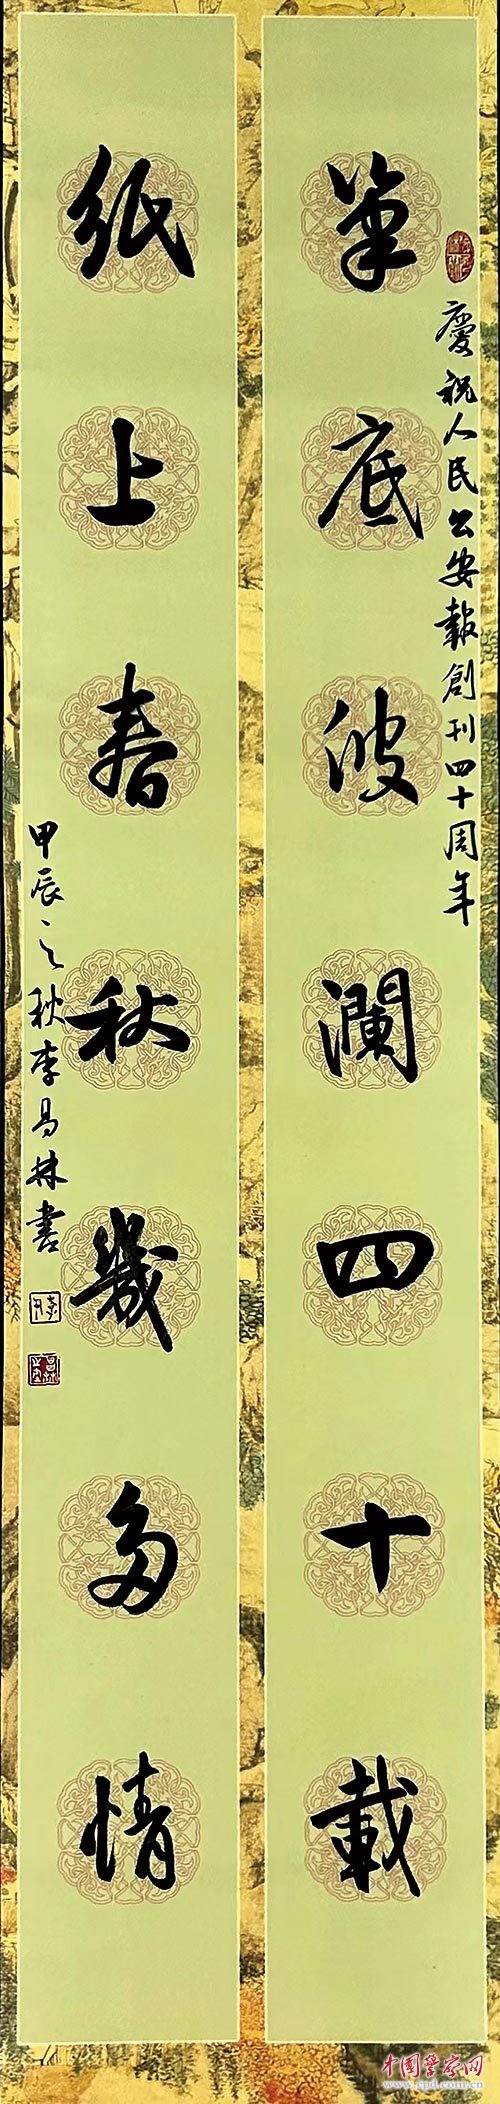 慶祝人民公安報創刊四十周年
筆底波瀾四十載
紙上春秋幾多情
甲辰之秋李昌林書
中国警察网
www.cpd.com.cn